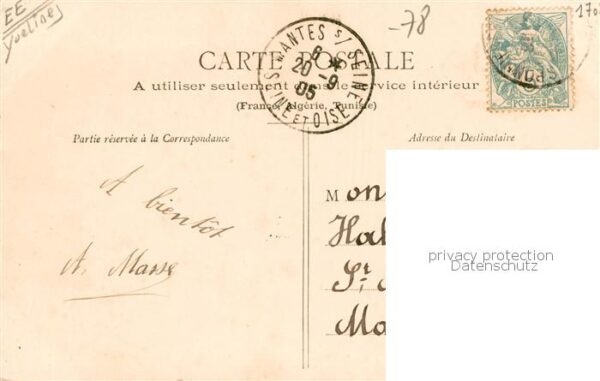 EE
Yvelines
-78
170
MANTES s/ SEINE
6 *
20 -9
05
SEINE ET OISE
CARTE POSTALE
A utiliser seulement dans le service intérieur
(France, Algérie, Tunisie)
POSTES
Partie réservée à la Correspondance
Adresse du Destinataire
A bientôt
A. Masse
Mon
Hal
St.
Ma
privacy protection
Datenschutz